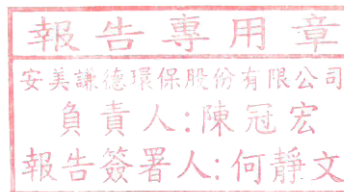 報告專用章
安美謙德環保股份有限公司
負責人:陳冠宏
報告簽署人:何靜文